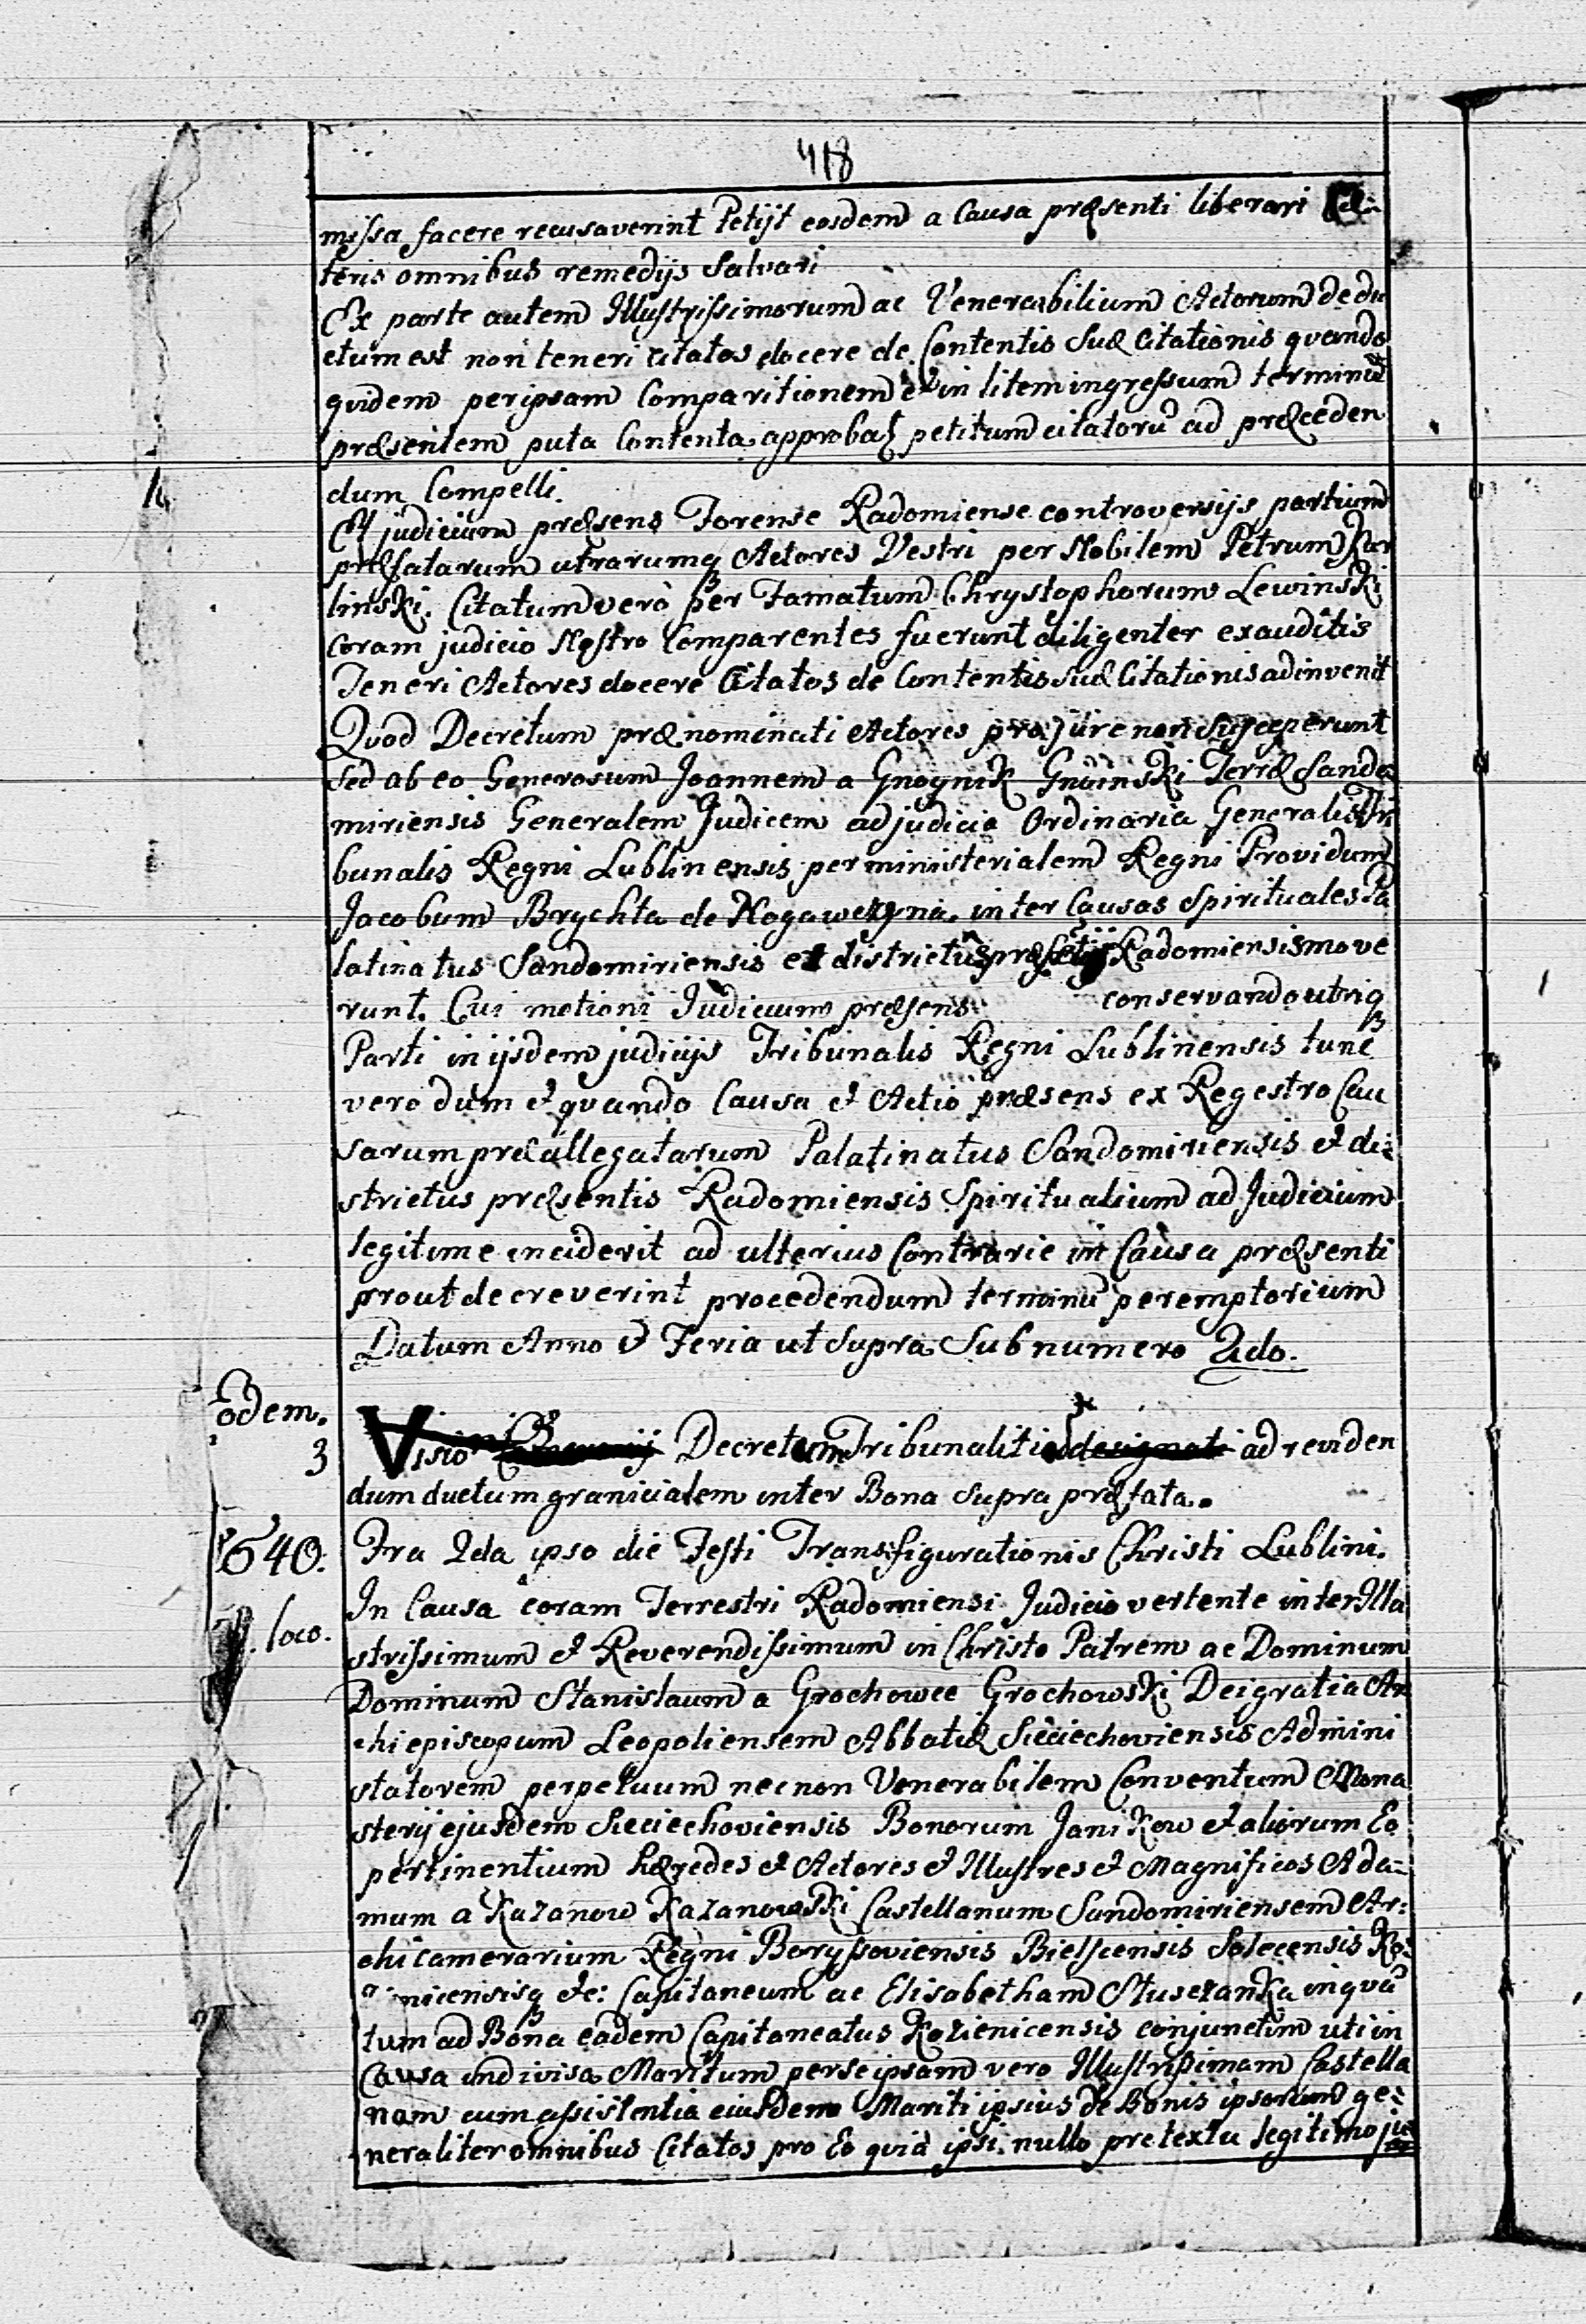 418
missa facere recusaverint Petijt eosdem a Causa præsenti liberari
teris omnibus remedijs Salvari
Ex parte autem Illustrissimorum ac Venerabilium Actorum dedu
ctum est non teneri citatos docere de Contentis Suæ Citationis quando
quidem per ipsam Comparitionem & in litem ingressum terminũ
præsentem puta Contenta approbaſ petitum citatorũ ad præceden
dum Compelli.
Et judicium præsens Forense Radomiense controversijs partium
præfatarum utrarumq Actores Vestri per Nobilem Petrum Kar
linski. Citatum verò per Famatum Chrystophorum Lewinski
Coram judicio Nostro Comparentes fuerunt diligenter exauditis
Teneri Actores docere Citatos de Contentis Suæ Citationis adinvenit
Quod Decretum prænominati Actores pro jure non Susceperunt
Sed ab eo Generosum Joannem a Gnoynik Gnoinski Terræ Sando
miriensis Generalem Judicem ad judicia Ordinaria Generalis Tri
bunalis Regni Lublinensis per ministerialem Regni Providum
Jacobum Brychta de inter Causas Spirituales Pa
latinatus Sandomiriensis et districtus Radomiensis move
runt. Cui motioni Judicium præsens conservando utriq
Parti in ijsdem judicijs Tribunalis Regni Lublinensis tunc
vero dum & quando Causa & Actio præsens ex Regestro Cau
sarum præallegatarum Palatinatus Sandomiriensis & di=
strictus præsentis Radomiensis Spiritualium ad Judicium
legitime inciderit ad ulterius Contrarie in Causa præsenti
prout decreverint procedendum terminũ peremptorium
Datum Anno & Feria ut Supra Sub numero 2do.
Eodem.
3
Visio Decretum Tribunalitio designati ad reviden
dum ductum granicialem inter Bona Supra præfata.
1640.
Fra 2da ipso die Festi Transfigurationis Christi Lublini.
loco.
In Causa coram Terrestri Radomiensi Judicio vertente inter Illu
strissimum & Reverendissimum in Christo Patrem ac Dominum
Dominum Stanislaum a Grochowce Grochowski Dei gratia Ar
chiepiscopum Leopoliensem Abbatiæ Sieciechoviensis Admini
statorem perpetuum necnon Venerabilem Conventum Mona
sterij ejusdem Sieciechoviensis Bonorum Janikow & aliorum Eo
pertinentium hæredes & Actores & Illustres & Magnificos Ada=
mum a Kazanow Kazanowski Castellanum Sandomiriensem Ar=
chicamerarium Regni Boryssoviensis Bielscensis Solecensis Ko=
nicensisq &c: Capitaneum ac Elisabetham Sluszanka in quã
tum ad Bona eadem Capitaneatus Kozienicensis conjunctim uti in
Causa indivisa Maritum per se ipsam vero Illustrissimam Castella
nam cum assistentia eiusdem Mariti ipsius de Bonis ipsorum ge=
neraliter omnibus Citatos pro Eo quia ipsi nullo pretextu legitimo ju